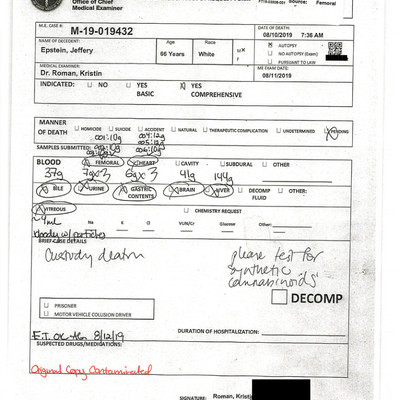 Office of Chief
Medical Examiner
Source: Femoral
M.E. CASE #:
M-19-019432
DATE OF DEATH:
08/10/2019 7:36 AM
NAME OF DECEDENT: Age Race Sex
Epstein, Jeffery 66 Years White M X F
AUTOPSY
NO AUTOPSY (Exam)
PURSUANT TO LAW
MEDICAL EXAMINER:
Dr. Roman, Kristin
ME EXAM DATE:
08/11/2019
INDICATED: NO YES YES
BASIC COMPREHENSIVE
MANNER
OF DEATH HOMICIDE SUICIDE ACCIDENT NATURAL THERAPEUTIC COMPLICATION UNDETERMINED PENDING
SAMPLES SUBMITTED:
BLOOD FEMORAL HEART CAVITY SUBDURAL OTHER
37g 7g x 3 6g x 3 41g 144g
BILE URINE GASTRIC CONTENTS BRAIN LIVER DECOMP FLUID OTHER:
VITREOUS CHEMISTRY REQUEST
Na K Cl VUN/Cr Glucose Other:
bloody w/ particles
BRIEF CASE DETAILS
Custody death
please test for
synthetic
cannabinoids
DECOMP
PRISONER
MOTOR VEHICLE COLLISION DRIVER
E.T. 8/12/19
DURATION OF HOSPITALIZATION:
SUSPECTED DRUGS/MEDICATIONS:
Original Copy Contaminated
SIGNATURE: Roman, Kristi